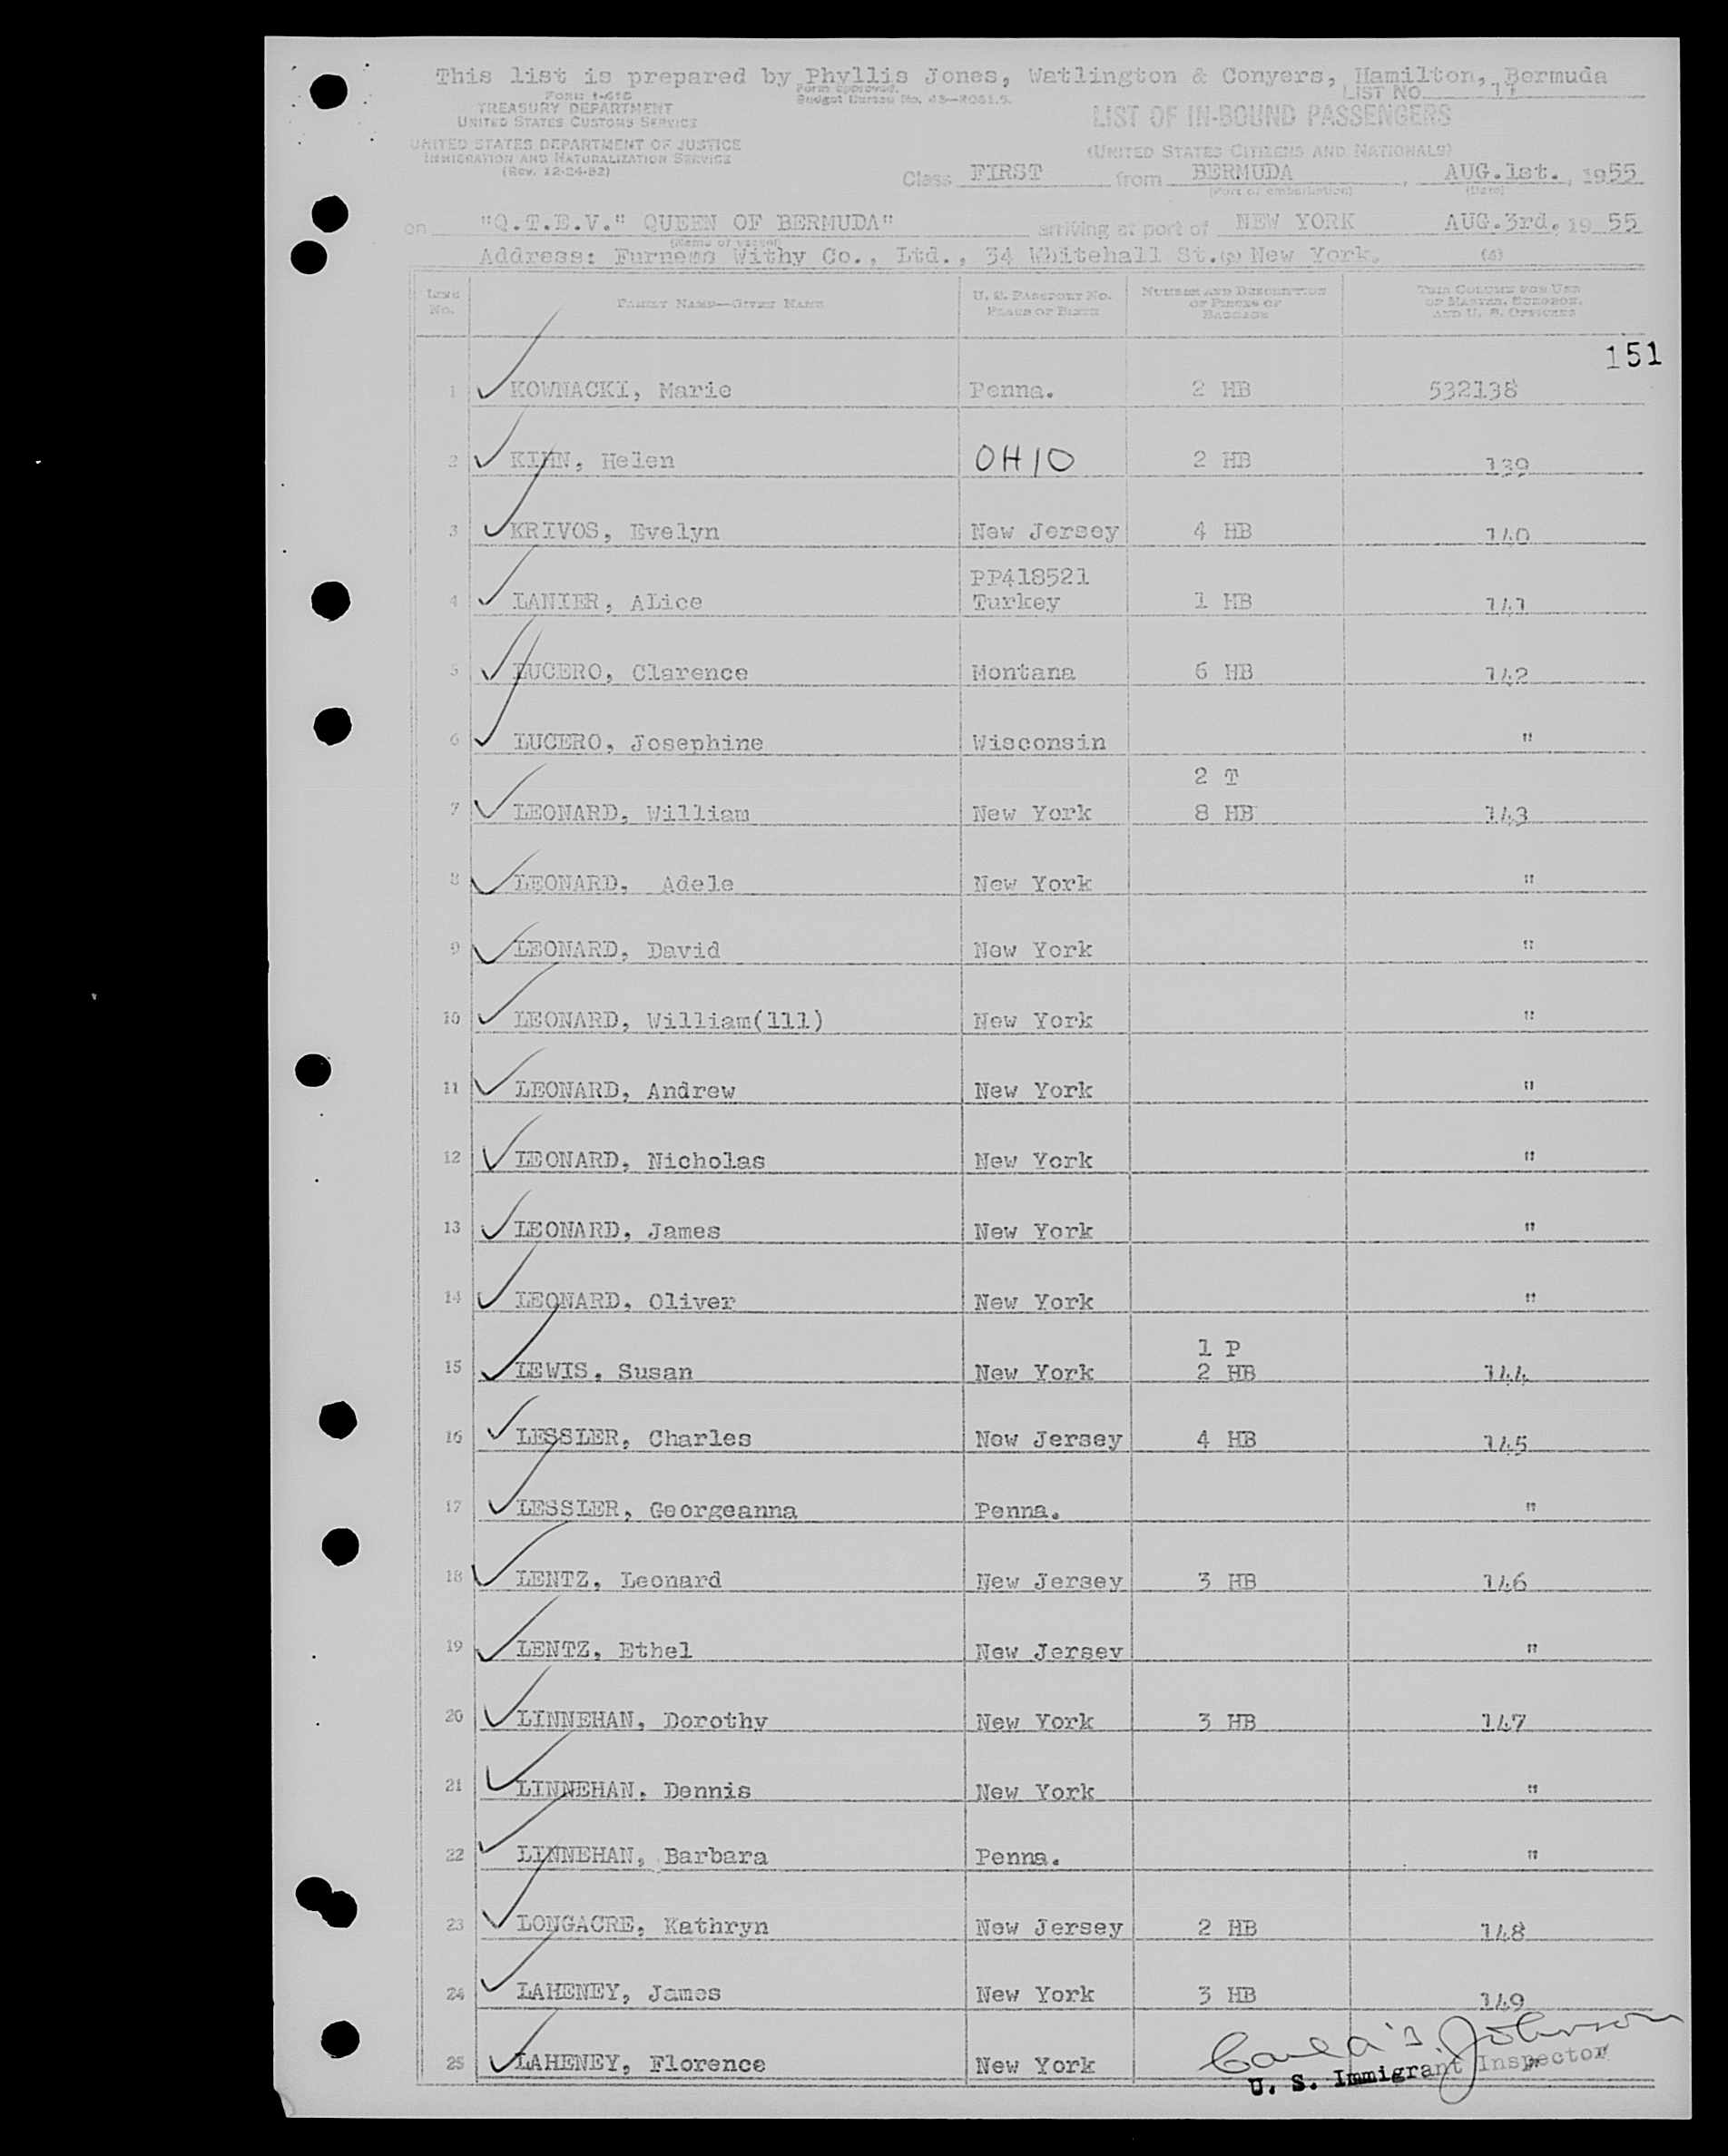 This list is prepared by Phyllis Jones, Watlington & Conyers, Hamilton, Bermuda
Form I-418
Form approved.
LIST NO. 11
TREASURY DEPARTMENT
Budget Bureau No. 43-R061.5.
UNITED STATES CUSTOMS SERVICE
LIST OF IN-BOUND PASSENGERS
UNITED STATES DEPARTMENT OF JUSTICE
(UNITED STATES CITIZENS AND NATIONALS)
IMMIGRATION AND NATURALIZATION SERVICE
(Rev. 12-24-52)
Class FIRST from BERMUDA, AUG.1st., 1955
(Port of embarkation) (Date)
on "Q.T.E.V." QUEEN OF BERMUDA" arriving at port of NEW YORK AUG.3rd, 19 55
(Name of vessel)
Address: Furness Withy Co., Ltd., 34 Whitehall St. New York.
(3) (4)
LINE No. FAMILY NAME—GIVEN NAME U. S. PASSPORT NO. PLACE OF BIRTH NUMBER AND DESCRIPTION OF PIECES OF BAGGAGE THIS COLUMN FOR USE OF MASTER, SURGEON, AND U. S. OFFICERS
151
1 KOWNACKI, Marie Penna. 2 HB 532138
2 KIHN, Helen OHIO 2 HB 139
3 KRIVOS, Evelyn New Jersey 4 HB 140
PP418521
4 LANIER, ALice Turkey 1 HB 141
5 LUCERO, Clarence Montana 6 HB 142
6 LUCERO, Josephine Wisconsin "
2 T
7 LEONARD, William New York 8 HB 143
8 LEONARD, Adele New York "
9 LEONARD, David New York "
10 LEONARD, William(lll) New York "
11 LEONARD, Andrew New York "
12 LEONARD, Nicholas New York "
13 LEONARD, James New York "
14 LEONARD, Oliver New York "
1 P
15 LEWIS, Susan New York 2 HB 144
16 LESSLER, Charles New Jersey 4 HB 145
17 LESSLER, Georgeanna Penna. "
18 LENTZ, Leonard New Jersey 3 HB 146
19 LENTZ, Ethel New Jersey "
20 LINNEHAN, Dorothy New York 3 HB 147
21 LINNEHAN, Dennis New York "
22 LINNEHAN, Barbara Penna. "
23 LONGACRE, Kathryn New Jersey 2 HB 148
24 LAHENEY, James New York 3 HB 149
25 LAHENEY, Florence New York "
Johnson
U. S. Immigrant Inspector